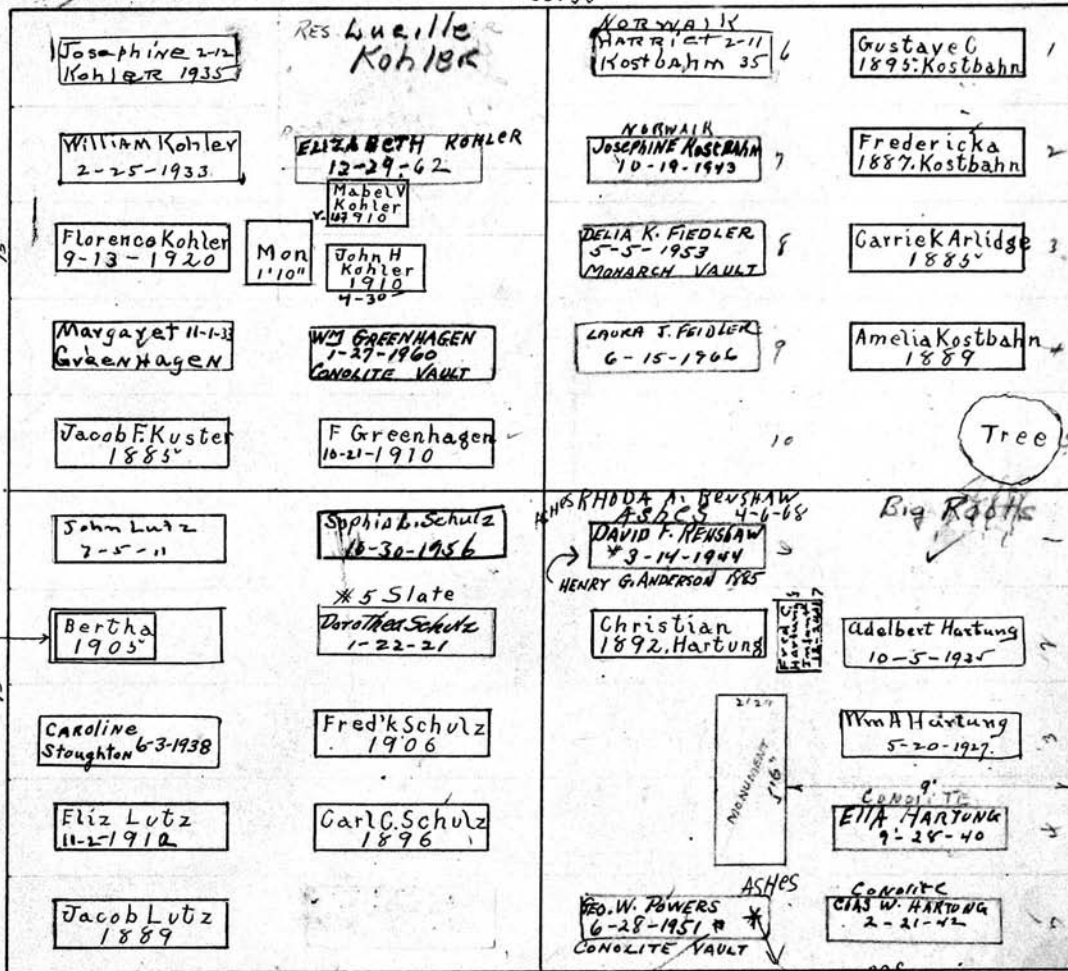 Josephine 2-12
Kohler 1935
RES. Lucille
Kohler
William Kohler
2-25-1933
ELIZABETH KOHLER
12-29-62
Mabel V
Kohler
1910
Florence Kohler
9-13-1920
Mon
1'10"
John H
Kohler
1910
4-30
Margaret 11-1-33
Greenhagen
WM GREENHAGEN
1-27-1960
CONOLITE VAULT
Jacob F. Kuster
1885
F Greenhagen
10-21-1910
NORWALK
HARRIET 2-11
Kostbahm 35
6
Gustave C
1895. Kostbahn
1
NORWALK
JOSEPHINE KOSTBAHN
10-19-1943
7
Fredericka
1887. Kostbahn
2
DELIA K. FIEDLER
5-5-1953
MONARCH VAULT
8
Carrie K Arlidge
1885
3
LAURA J. FEIDLER
6-15-1966
9
Amelia Kostbahn
1889
4
10
Tree
5
John Lutz
7-5-11
Sophia L. Schulz
10-30-1956
Bertha
1905
* 5 Slate
Dorothea Schulz
1-22-21
CAROLINE
Stoughton 6-3-1938
Fred'k Schulz
1906
Eliz Lutz
11-2-1912
Carl C. Schulz
1896
Jacob Lutz
1889
ASHES RHODA A. RENSHAW
ASHES 4-6-68
DAVID F. RENSHAW
* 3-14-1944
HENRY G. ANDERSON 1885
Big Roots
1
Christian
1892. Hartung
Fred C
Hartung
Adelbert Hartung
10-5-1935
2
MONUMENT
5'16"
Wm A Hartung
5-20-1927
3
9'
CONOLITE
ELLA HARTUNG
9-28-40
4
GEO. W. POWERS
6-28-1951 *
CONOLITE VAULT
ASHES
*
CONOLITE
CHAS W. HARTUNG
2-21-42
5